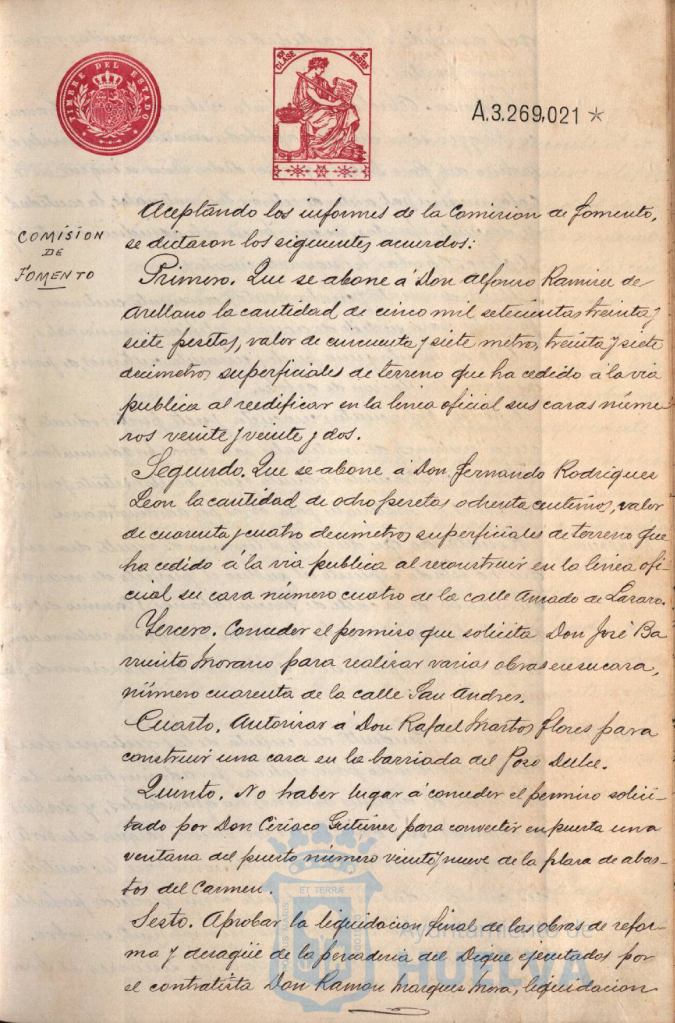 TIMBRE DEL ESTADO
CLASE
PESETAS
A.3.269,021 *
COMISION
DE
FOMENTO
Aceptando los informes de la Comision de Fomento,
se dictaron los siguientes acuerdos:
Primero. Que se abone á Don Alfonso Ramirez de
Arellano la cantidad de cinco mil setecientas treinta y
siete pesetas, valor de cincuenta y siete metros, treinta y siete
decimetros superficiales de terreno que ha cedido á la via
publica al reedificar en la linea oficial sus casas núme
ros veinte y veinte y dos.
Segundo. Que se abone á Don Fernando Rodriguez
Leon la cantidad de ocho pesetas ochenta centimos, valor
de cuarenta y cuatro decimetros superficiales de terreno que
ha cedido á la via publica al reconstruir en la linea ofi-
cial su casa número cuatro de la calle Amado de Lazaro.
Tercero. Conceder el permiso que solicita Don José Ba
rruito Morano para realizar varias obras en su casa,
número cuarenta de la calle San Andres.
Cuarto. Autorizar á Don Rafael Martos Flores para
construir una casa en la barriada del Pozo Dulce.
Quinto. No haber lugar á conceder el permiso solici-
tado por Don Ciriaco Gutierrez para convertir en puerta una
ventana del puesto número veinte y nueve de la plaza de abas-
tos del Carmen.
Sesto. Aprobar la liquidacion final de las obras de refor-
ma y desagüe de la pescaderia del Dique ejecutados por
el contratista Don Ramon Marques Mora, liquidacion
ET TERRÆ
Ayuntamiento de
HUELVA